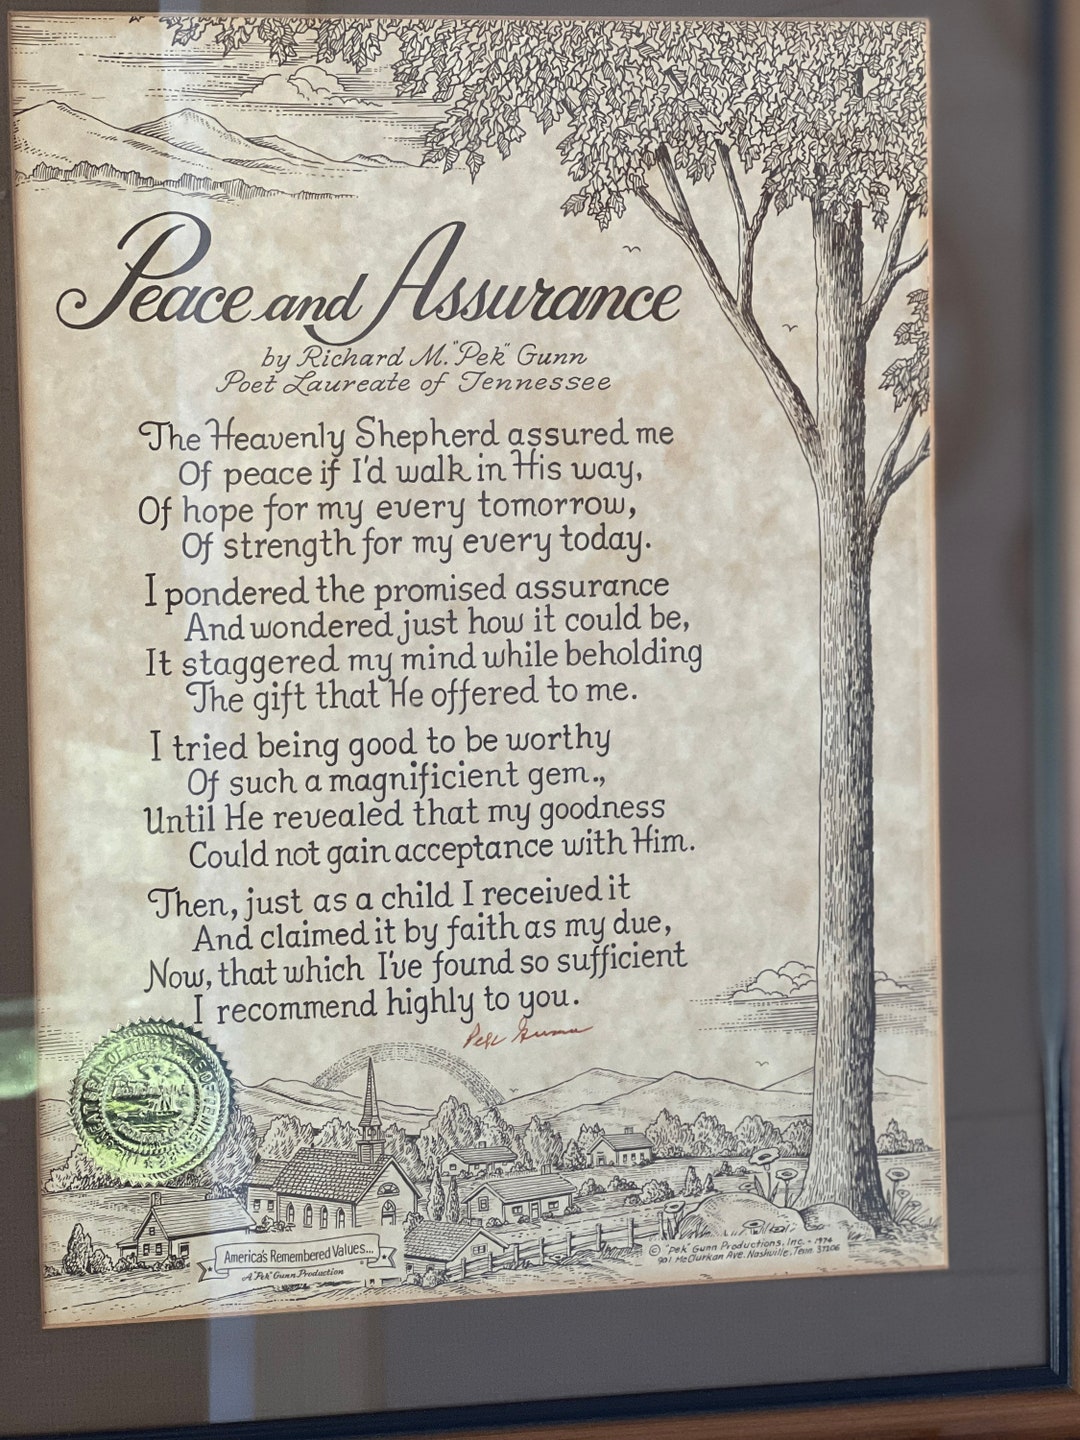 Peace and Assurance
by Richard M. "Pek" Gunn
Poet Laureate of Tennessee
The Heavenly Shepherd assured me
Of peace if I'd walk in His way,
Of hope for my every tomorrow,
Of strength for my every today.
I pondered the promised assurance
And wondered just how it could be,
It staggered my mind while beholding
The gift that He offered to me.
I tried being good to be worthy
Of such a magnificient gem.,
Until He revealed that my goodness
Could not gain acceptance with Him.
Then, just as a child I received it
And claimed it by faith as my due,
Now, that which I've found so sufficient
I recommend highly to you.
Pek Gunn
America's Remembered Values...
A "Pek" Gunn Production
© "Pek" Gunn Productions, Inc. - 1974
901 McClurkan Ave. Nashville, Tenn. 37206